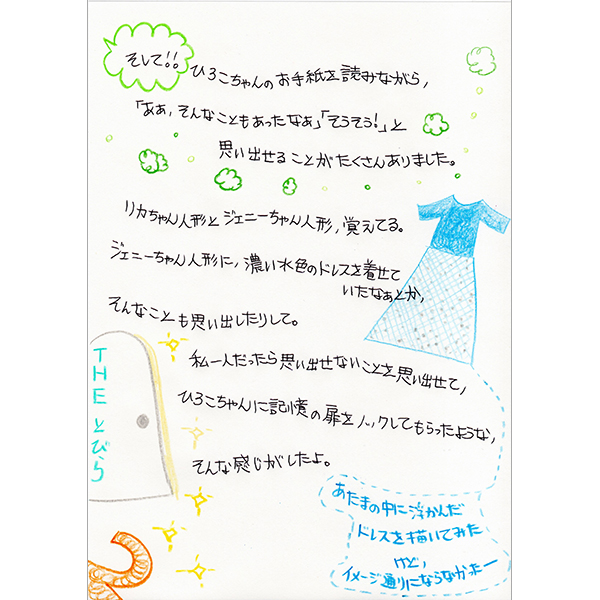 そして!!
ひろこちゃんのお手紙を読みながら,
「ああ,そんなこともあったなぁ」「そうそう!」と
思い出せることがたくさんありました。
リカちゃん人形とジェニーちゃん人形,覚えてる。
ジェニーちゃん人形に,濃い水色のドレスを着せて
いたなぁとか,
そんなことも思い出したりして。
私一人だったら思い出せないことを思い出せて,
ひろこちゃんに記憶の扉をノックしてもらったような,
そんな感じがしたよ。
THEとびら
あたまの中に浮かんだ
ドレスを描いてみた
けど,
イメージ通りにならなかったー